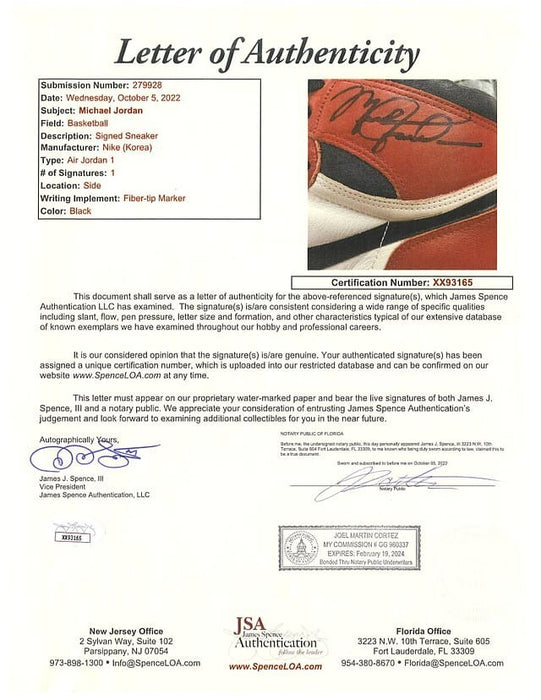 Letter of Authenticity
Submission Number: 279928
Date: Wednesday, October 5, 2022
Subject: Michael Jordan
Field: Basketball
Description: Signed Sneaker
Manufacturer: Nike (Korea)
Type: Air Jordan 1
# of Signatures: 1
Location: Side
Writing Implement: Fiber-tip Marker
Color: Black
Certification Number: XX93165
This document shall serve as a letter of authenticity for the above-referenced signature(s), which James Spence
Authentication LLC has examined. The signature(s) is/are consistent considering a wide range of specific qualities
including slant, flow, pen pressure, letter size and formation, and other characteristics typical of our extensive database
of known exemplars we have examined throughout our hobby and professional careers.
It is our considered opinion that the signature(s) is/are genuine. Your authenticated signature(s) has been
assigned a unique certification number, which is uploaded into our restricted database and can be confirmed on our
website www.SpenceLOA.com at any time.
This letter must appear on our proprietary water-marked paper and bear the live signatures of both James J.
Spence, III and a notary public. We appreciate your consideration of entrusting James Spence Authentication's
judgement and look forward to examining additional collectibles for you in the near future.
Autographically Yours,
James J. Spence, III
Vice President
James Spence Authentication, LLC
NOTARY PUBLIC OF FLORIDA
Before me, the undersigned notary public, this day personally appeared James J. Spence, III 3223 N.W. 10th
Terrace, Suite 604 Fort Lauderdale, FL 33309, to me known who being duly sworn according to law, claimed this to
be a true document.
Sworn and subscribed to before me on October 05, 2022
Notary Public
XX93165
JOEL MARTIN CORTEZ
MY COMMISSION # GG 960337
EXPIRES: February 19, 2024
Bonded Thru Notary Public Underwriters
New Jersey Office
2 Sylvan Way, Suite 102
Parsippany, NJ 07054
973-898-1300 • Info@SpenceLOA.com
JSA
James Spence
Authentication
follow the leader
www.SpenceLOA.com
Florida Office
3223 N.W. 10th Terrace, Suite 605
Fort Lauderdale, FL 33309
954-380-8670 • Florida@SpenceLOA.com